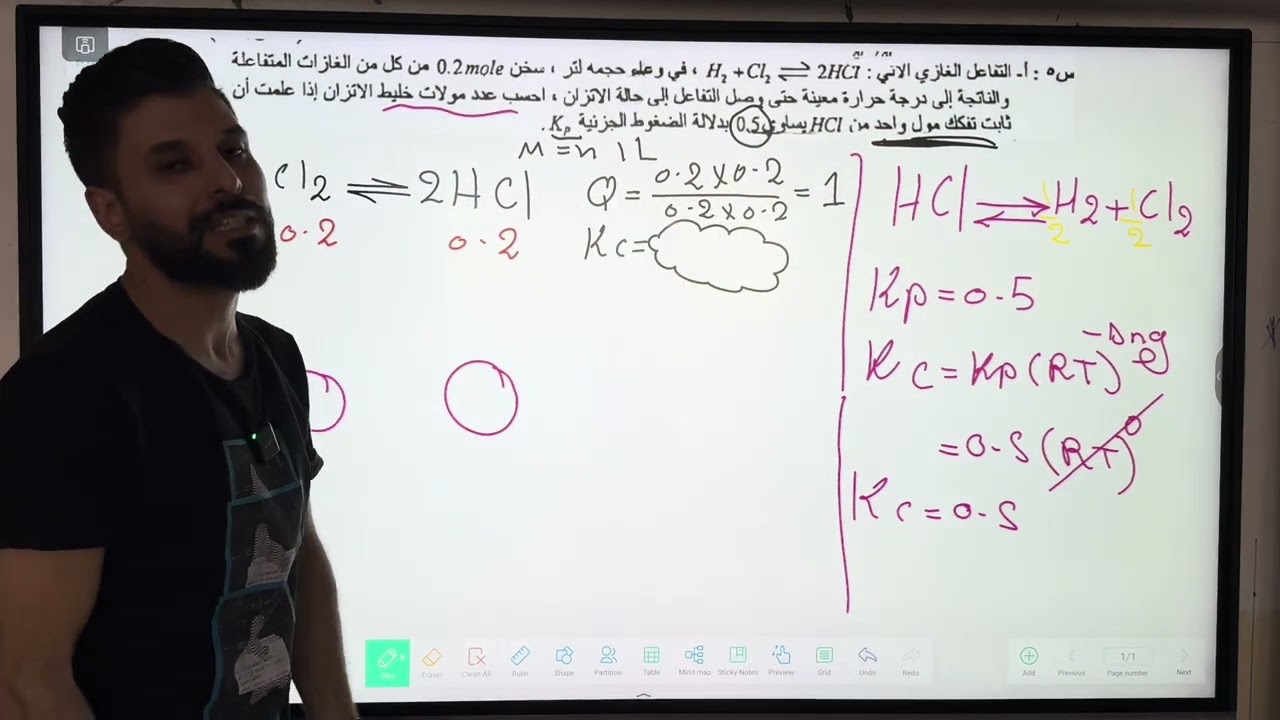 س٥ : أ- التفاعل الغازي الاتي : H₂ + Cl₂ ⇌ 2HCl ، في وعاء حجمه لتر ، سخن 0.2mole من كل من الغازات المتفاعلة
والناتجة إلى درجة حرارة معينة حتى وصل التفاعل إلى حالة الاتزان ، احسب عدد مولات خليط الاتزان إذا علمت أن
ثابت تفكك مول واحد من HCl يساوي 0.5 بدلالة الضغوط الجزئية Kp .
M = n 1L
Cl2 ⇌ 2HCl
0.2 0.2
Q = 0.2 X 0.2 / 0.2 x 0.2 = 1
Kc =
HCl ⇌ 1/2 H2 + 1/2 Cl2
Kp = 0.5
Kc = Kp (RT)^-Dng
= 0.5 (RT)^0
Kc = 0.5
Pen Eraser Clean All Ruler Shape Partition Table Mind map Sticky Notes Preview Grid Undo Redo Add Previous 1/1 Page number Next